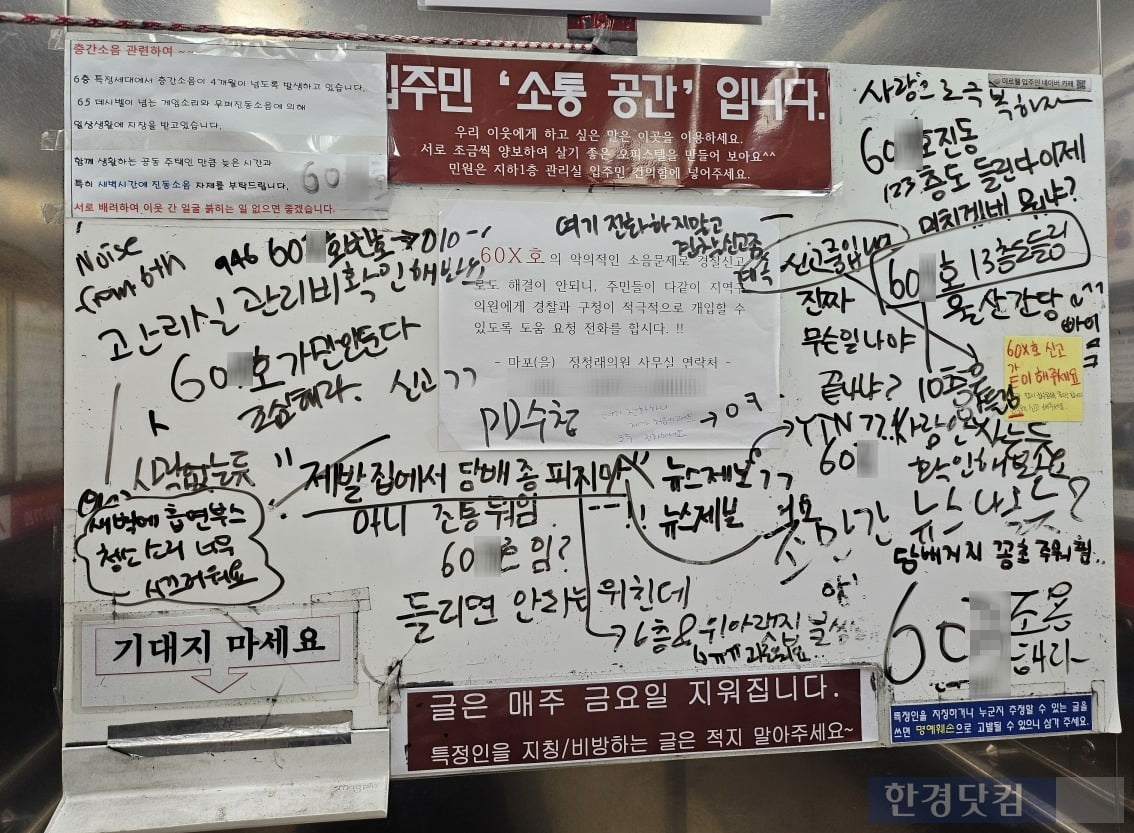 층간소음 관련하여 ~~
6층 특정세대에서 층간소음이 4개월이 넘도록 발생하고 있습니다.
65 데시벨이 넘는 게임소리와 우퍼진동소음에 의해
일상생활에 지장을 받고있습니다.
함께 생활하는 공동 주택인 만큼 늦은 시간과
특히 새벽시간에 진동소음 자제를 부탁드립니다.
60
서로 배려하여 이웃 간 얼굴 붉히는 일 없으면 좋겠습니다.
입주민 '소통 공간' 입니다.
우리 이웃에게 하고 싶은 말은 이곳을 이용하세요.
서로 조금씩 양보하여 살기 좋은 오피스텔을 만들어 보아요^^
민원은 지하1층 관리실 입주민 건의함에 넣어주세요.
입주민 네이버 카페
사랑으로 극복하자
60 호진동
123층도 들린다 이제
미치겠네 뭐냐?
Noise
from 6th
60 호번호 → 010-
관리실 관리비확인해반
60 호가만안둔다
조심해라. 신고 ㄱㄱ
여기 전화하지말고
경찰신고좀
60X호의 악의적인 소음문제로 경찰신고
로도 해결이 안되니, 주민들이 다같이 지역구
의원에게 경찰과 구청이 적극적으로 개입할 수
있도록 도움 요청 전화를 합시다. !!
- 마포(을) 정청래의원 사무실 연락처 -
PD수첩
진짜
무슨일 나야
끝나냐?
60 호 13층도들림
10층도들림
60X호 신고
같이 해주세요
YTN ㄱㄱ
사람안사는듯
60
확인해보소요
"제발집에서 담배 좀 피지마"
아니 조통뭐임
60 호임?
들리면 안되는 위친데
→ 6층& 위아랫집 불쌍
뉴스제보 ㄱㄱ
뉴스제보
뉴스 나오누?
담배가지 꽁초 주워 핌..
새벽에 흡연부스
청소소리 너무
시끄러워요
기대지 마세요
60 조온
해라
글은 매주 금요일 지워집니다.
특정인을 지칭/비방하는 글은 적지 말아주세요~
특정인을 지칭하거나 누군지 추정할 수 있는 글을
쓰면 명예훼손으로 고발될 수 있으니 삼가 주세요.
한경닷컴